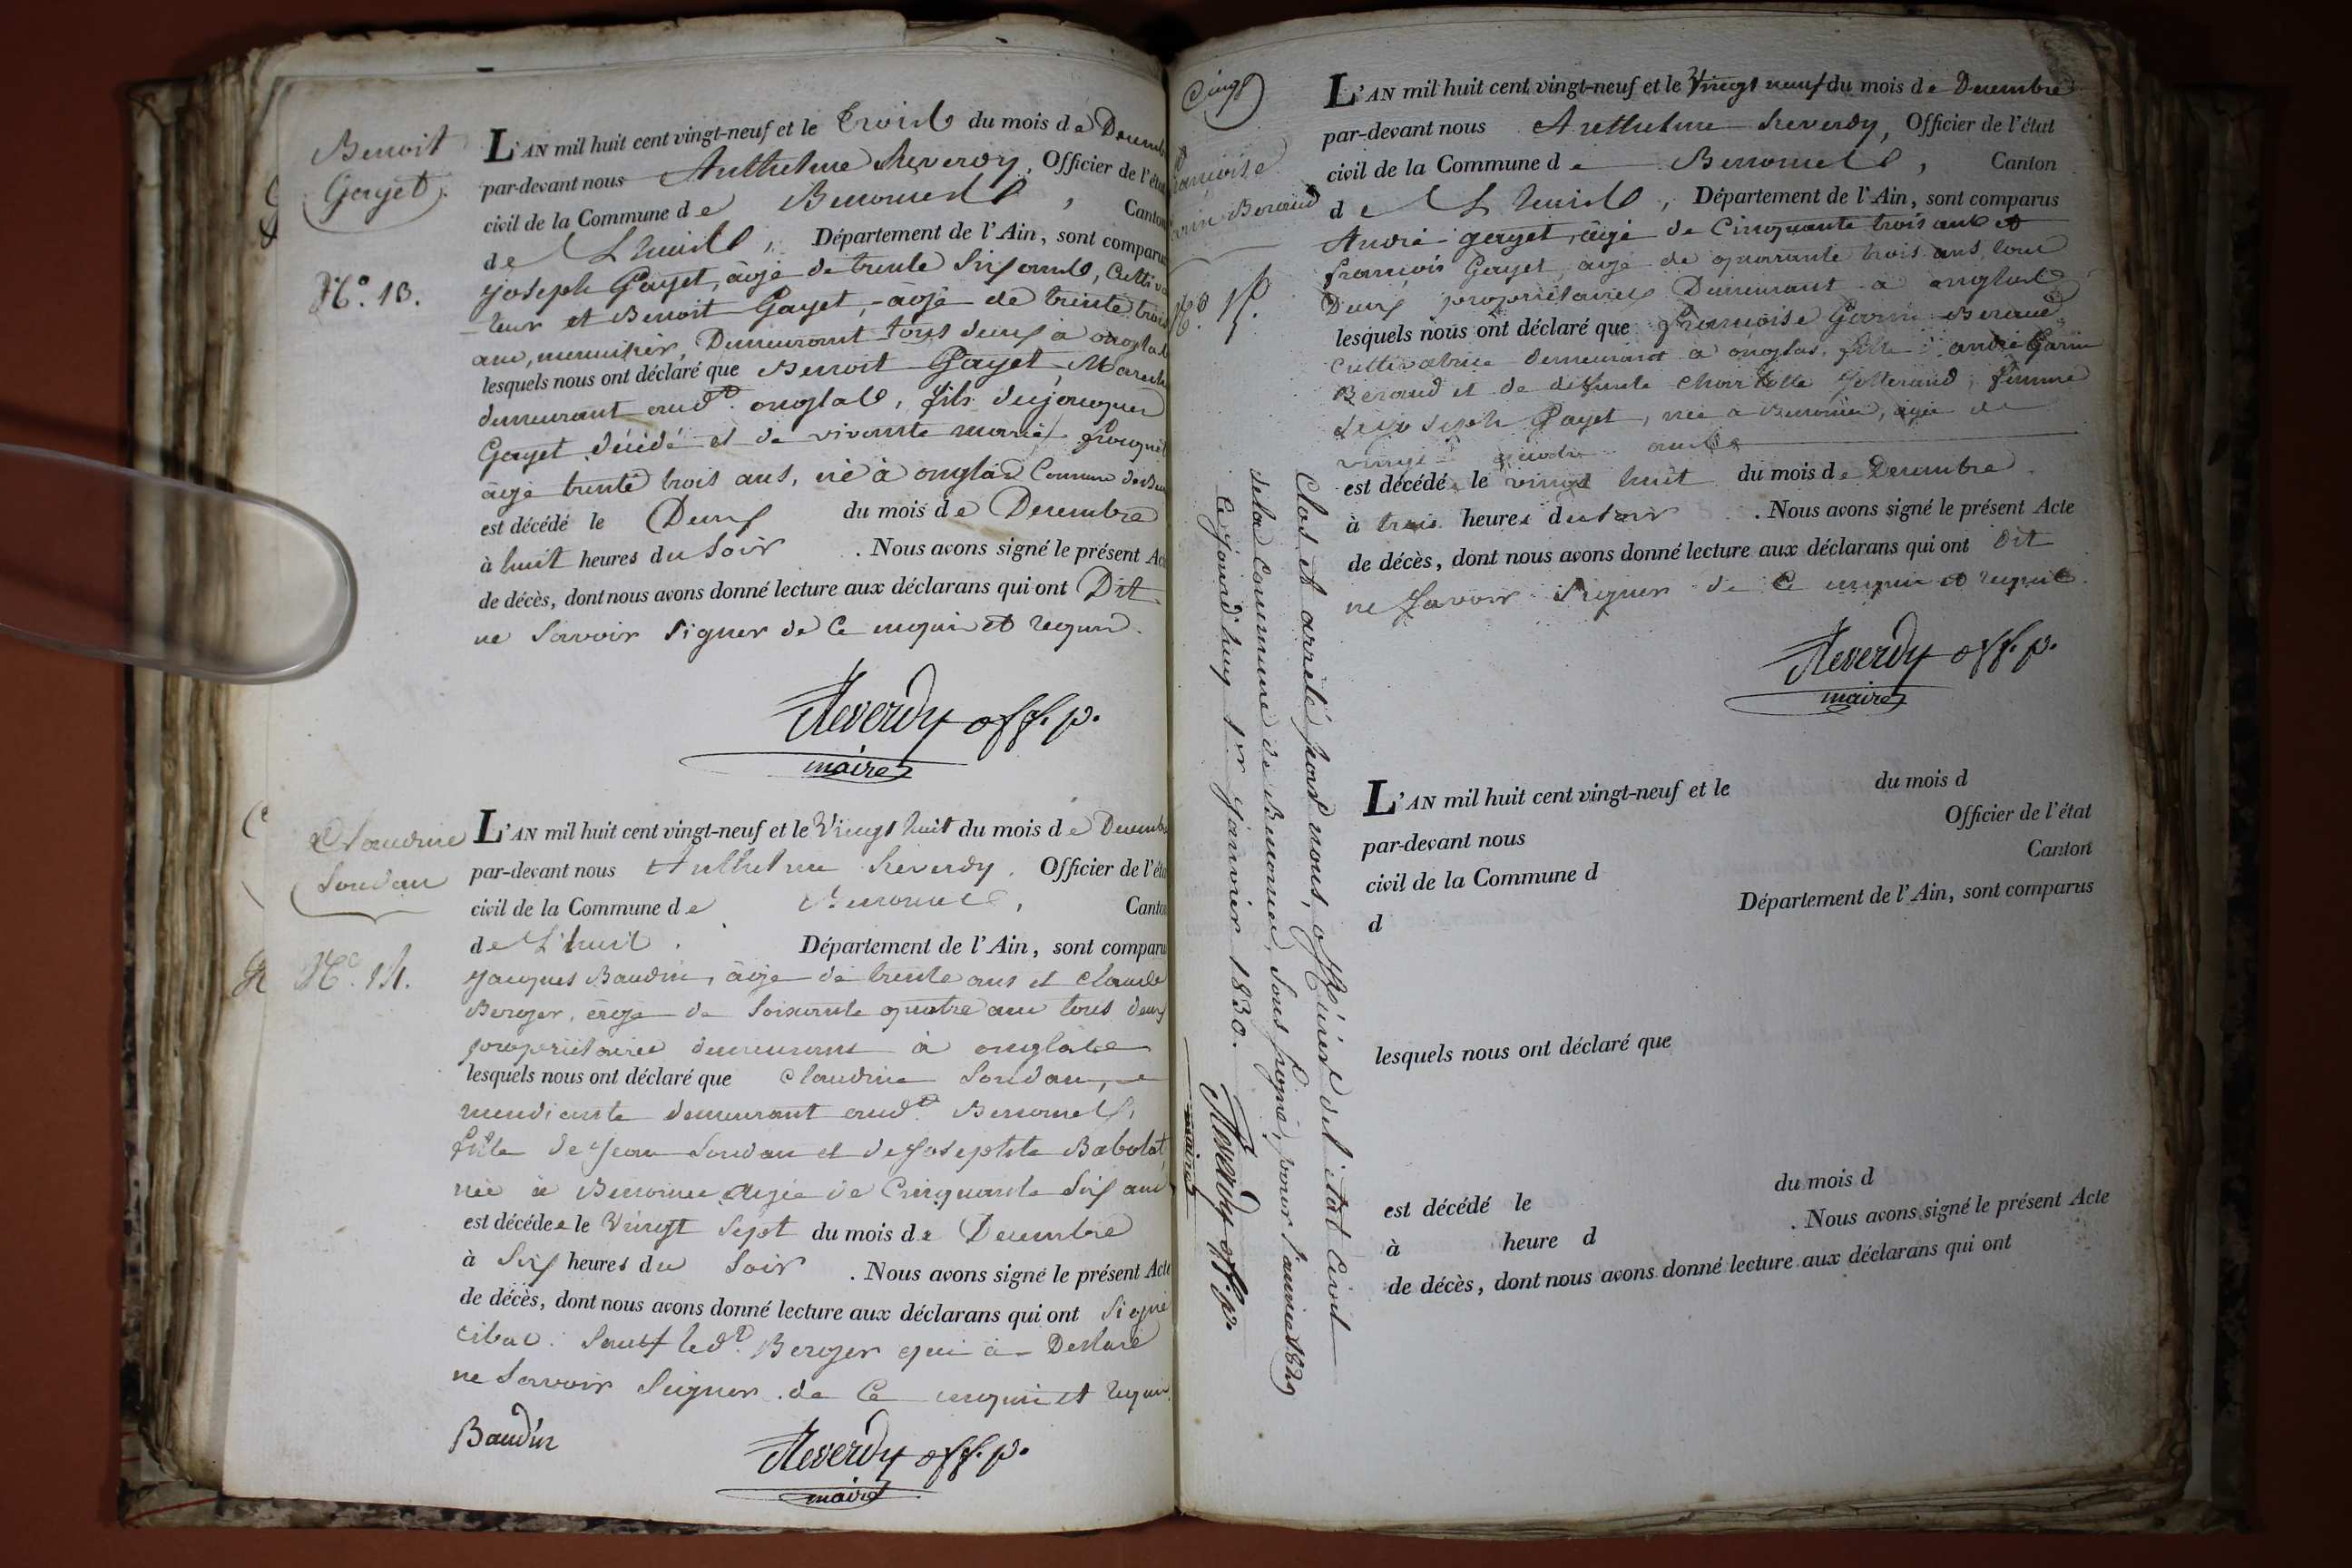 Benoit
Gayet
N.o 13.
L'AN mil huit cent vingt-neuf et le trois du mois de Decemb
par-devant nous Anthelme Reverdy, Officier de l'éta
civil de la Commune de Benonces, Canton
de L huis, Département de l'Ain, sont comparus
joseph Gayet, âgé de trente six ans, Cultiva
-teur et Benoit Gayet, âgé de trente trois
ans, menuisier, Demeurant tous deux à onglas
lesquels nous ont déclaré que Benoit Gayet,
demeurant aud.t onglas, fils de jacques
Gayet décédé et de vivante marie
âgé trente trois ans, né à onglas Commune de Ben
est décédé le Deux du mois de Decembre
à huit heures du Soir. Nous avons signé le présent Ac
de décès, dont nous avons donné lecture aux déclarans qui ont Dit
ne Savoir signer de Ce enquis et requis.
Reverdy off. p.
maire
Claudine
Soudan
N.o 14.
L'AN mil huit cent vingt-neuf et le Vingt huit du mois de Decemb
par-devant nous Anthelme Reverdy. Officier de l'éta
civil de la Commune de Benonces, Canton
de L'huis. Département de l'Ain, sont comparu
Jacques Baudin, âgé de trente ans et Claude
Berger, âgé de Soixante quatre ans tous deux
propriétaires demeurant à onglas
lesquels nous ont déclaré que Claudine Soudan,
mendiante demeurant aud.t Benonces,
fille de Jean Soudan et de Josephte Babolat,
née à Benonces âgée de Cinquante Six ans
est décédée le Vingt Sept du mois de Decembre
à Six heures du Soir. Nous avons signé le présent Acte
de décès, dont nous avons donné lecture aux déclarans qui ont Signé
Sauf led.t Berger qui a Déclaré
ne Savoir Signer de Ce enquis et requis.
Baudin
Reverdy off. p.
maire
Cinq
françoise
Garin Beraud
N.o 15.
L'AN mil huit cent vingt-neuf et le Vingt neuf du mois de Decembre
par-devant nous Anthelme Reverdy, Officier de l'état
civil de la Commune de Benonces, Canton
de L huis, Département de l'Ain, sont comparus
André gayet, âgé de Cinquante trois ans et
françois Gayet, agé de quarante trois ans, tous
Deux propriétaires Demeurant à onglas
lesquels nous ont déclaré que françoise Garin Beraud
Cultivatrice demeurant à onglas, fille d'andré Garin
Beraud et de défunte Charlotte Jotterand, femme
de joseph Gayet, née à Benonces, agée de
vingt quatre ans
est décédé e le vingt huit du mois de Decembre
à trois heures du soir. Nous avons signé le présent Acte
de décès, dont nous avons donné lecture aux déclarans qui ont Dit
ne Savoir Signer de Ce enquis et requis.
Reverdy off. p.
maire
Clos et arrêté par nous, officier de l'état Civil
de la Commune de Benonces, Sous signé, pour l'année 1829
Ce jourd'huy 1er Janvier 1830.
Reverdy off. p.
maire
L'AN mil huit cent vingt-neuf et le du mois d
par-devant nous Officier de l'état
civil de la Commune d Canton
d Département de l'Ain, sont comparus
lesquels nous ont déclaré que
est décédé le du mois d
à heure d. Nous avons signé le présent Acte
de décès, dont nous avons donné lecture aux déclarans qui ont